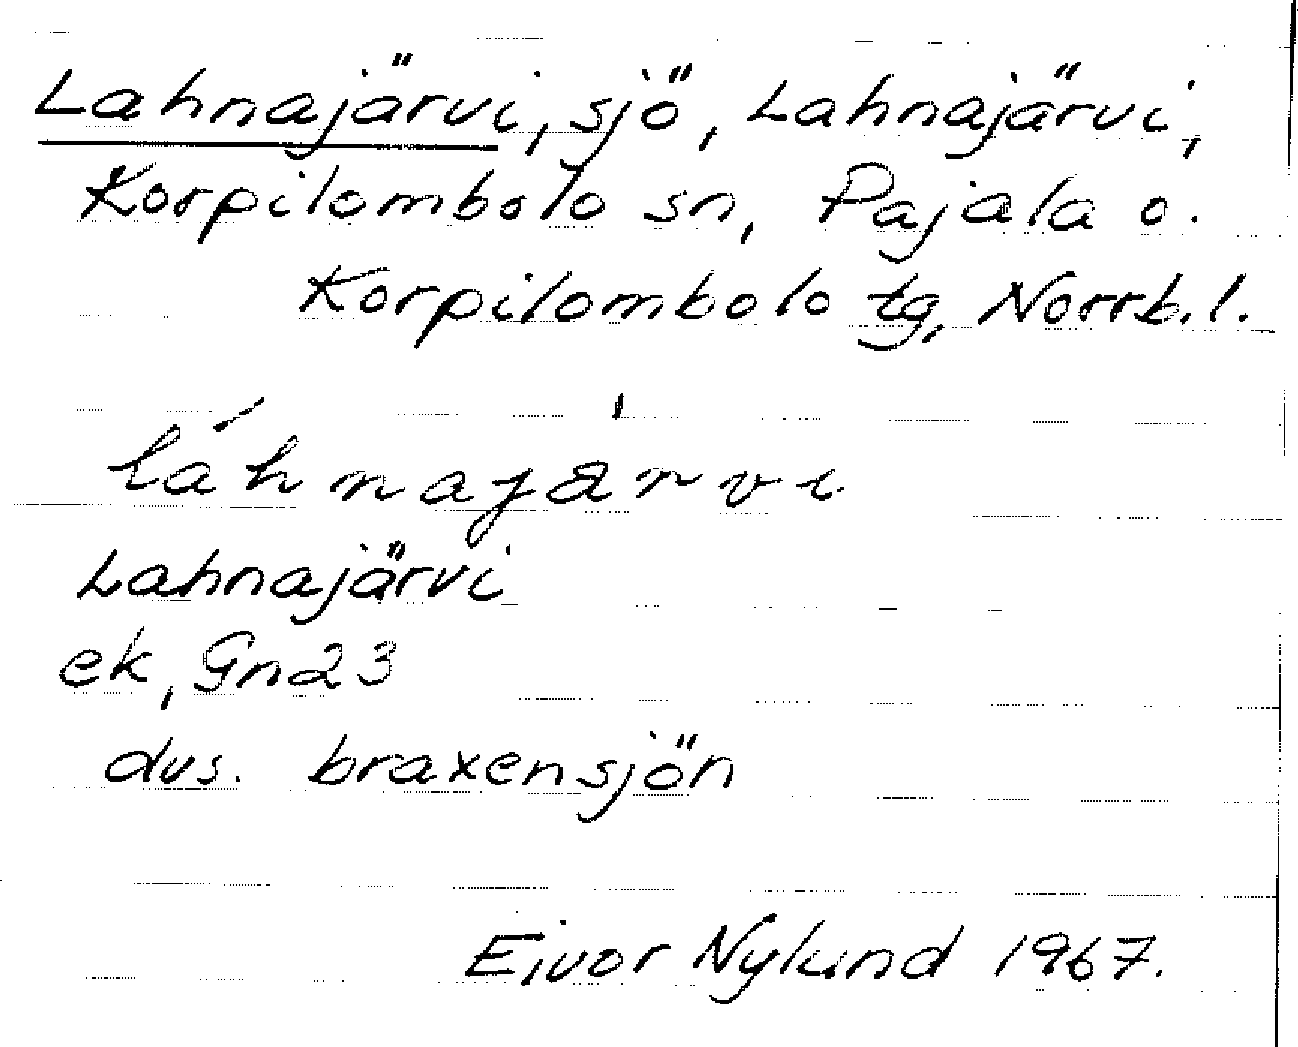 Lahnajärvi, sjö, Lahnajärvi,
Korpilombolo sn, Pajala o.
Korpilombolo tg, Norrb. l.
láhnajàrvi
Lahnajärvi
ek, Gn23
dvs. braxensjön
Eivor Nylund 1967.